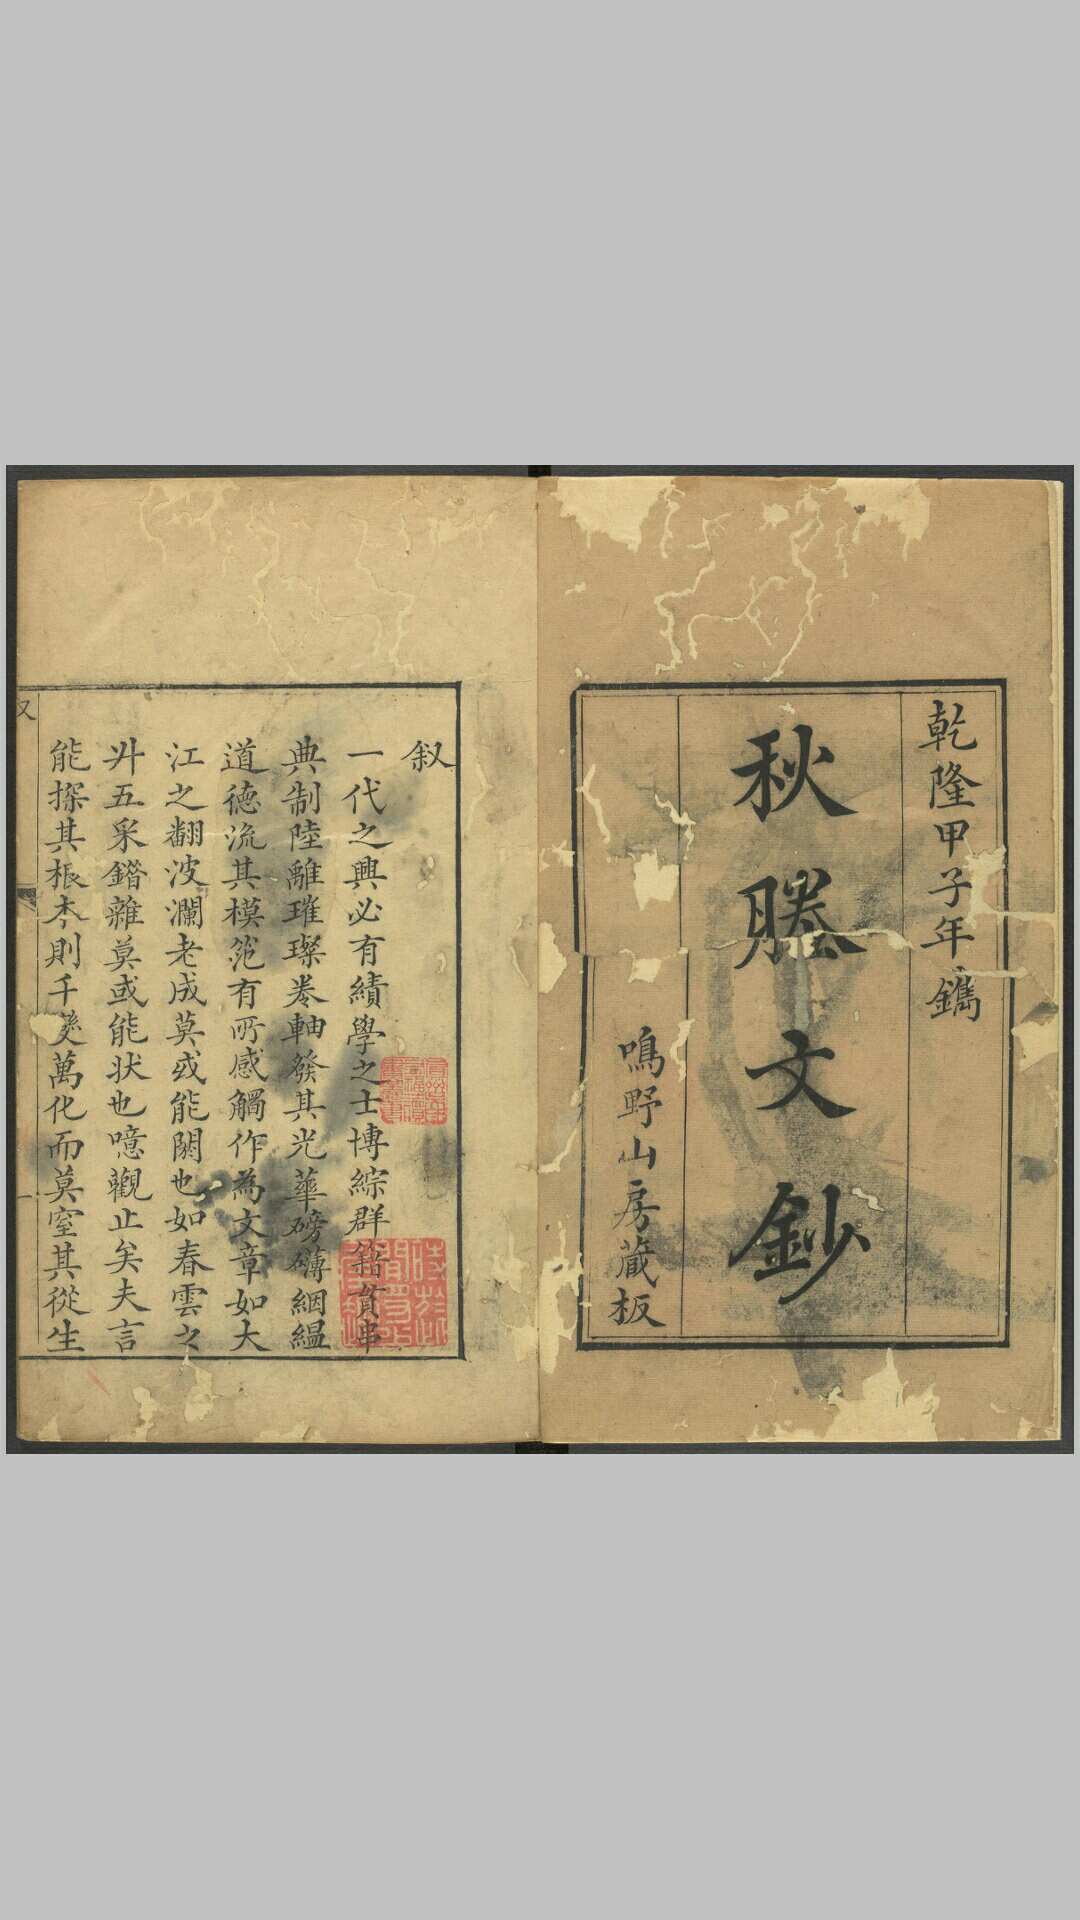 乾隆甲子年鐫
秋塍文鈔
鳴野山房藏板
叙
一代之興必有績學之士博綜群籍貫串
典制陸離璀璨卷軸發其光華磅礴絪縕
道德流其模範有所感觸作為文章如大
江之翻波瀾老成莫或能閼也如春雲之
升五采錯雜莫或能状也噫觀止矣夫言
能探其根本則千變萬化而莫窒其從生
叙
一